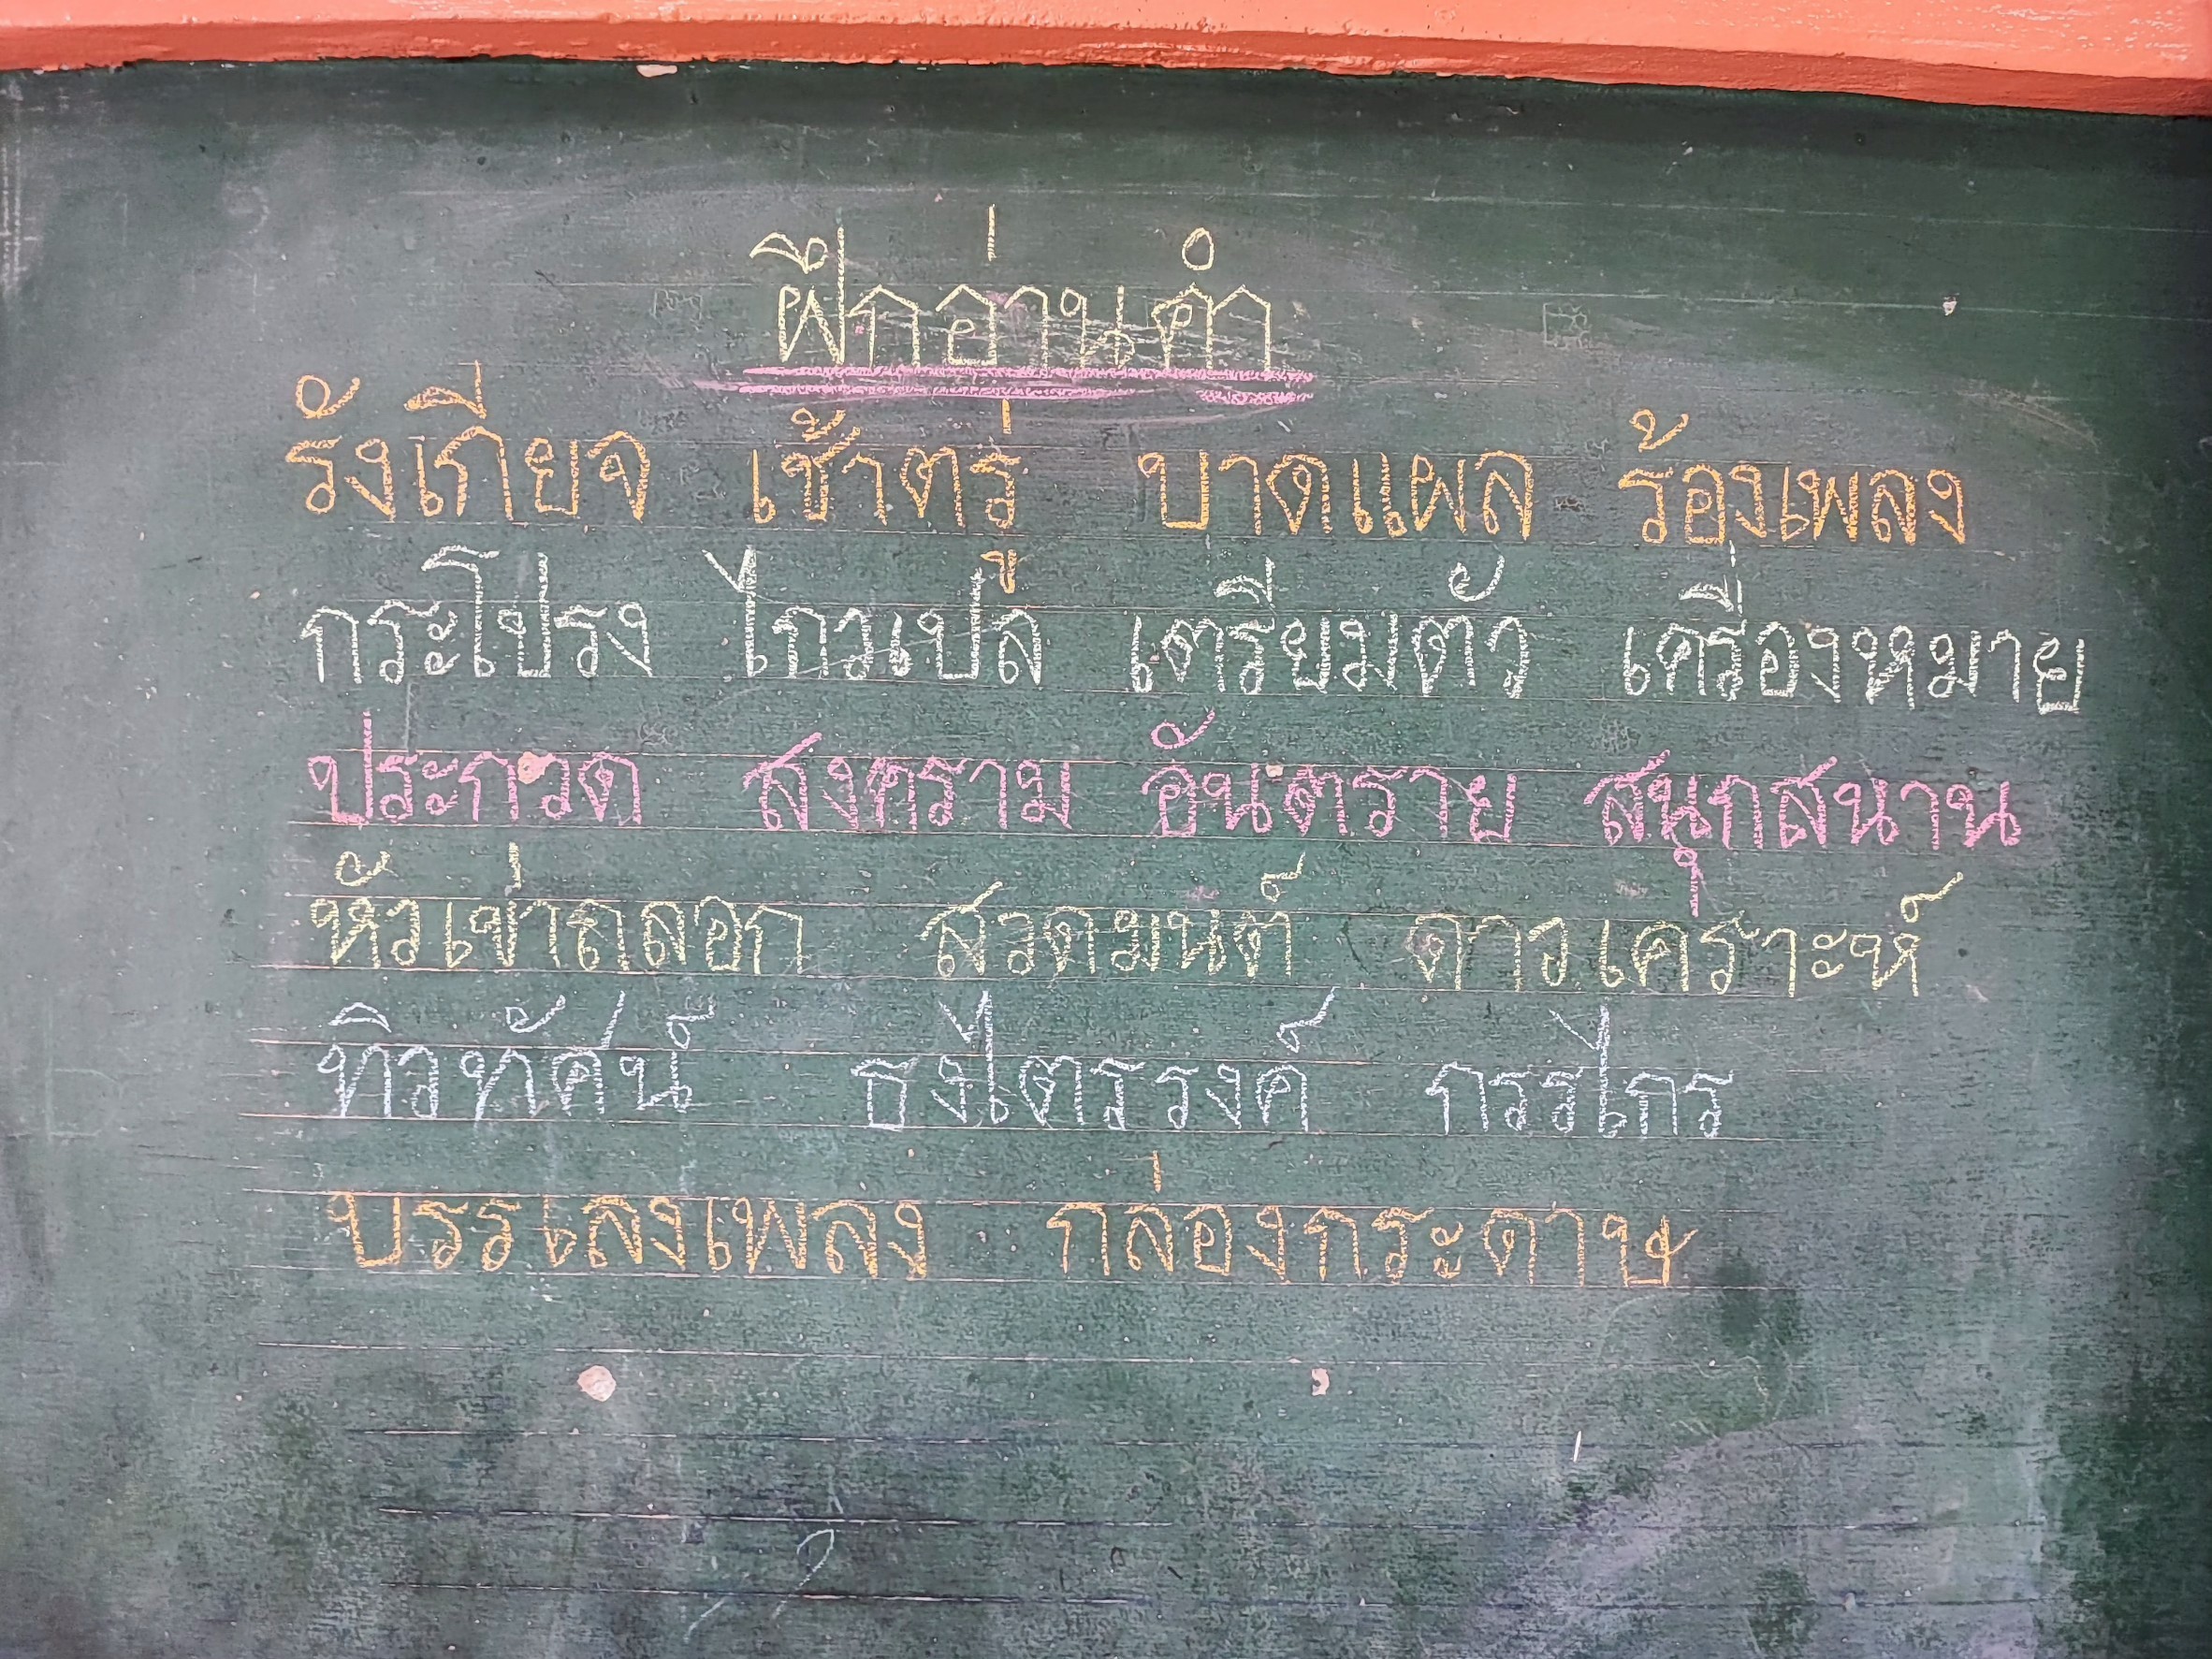 ฝึกอ่านคำ
รังเกียจ เช้าตรู่ บาดแผล ร้องเพลง
กระโปรง ไกวเปล เตรียมตัว เครื่องหมาย
ประกวด สงคราม อันตราย สนุกสนาน
หัวเข่าถลอก สวดมนต์ ดาวเคราะห์
ทิวทัศน์ ธงไตรรงค์ กรรไกร
บรรเลงเพลง กล่องกระดาษ